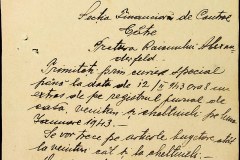 Secția Financiară de Control
Către
Pretura Raionului Alexan-
drfeld
Trimiteți prin curier special
până la data de 12/II 943 ora 8 un
extras de pe registrul jurnal de
casă, venituri și cheltueli pe luna
Ianuarie 1943.
Se vor trece pe articole bugetare atât
la venituri cât și la cheltueli.